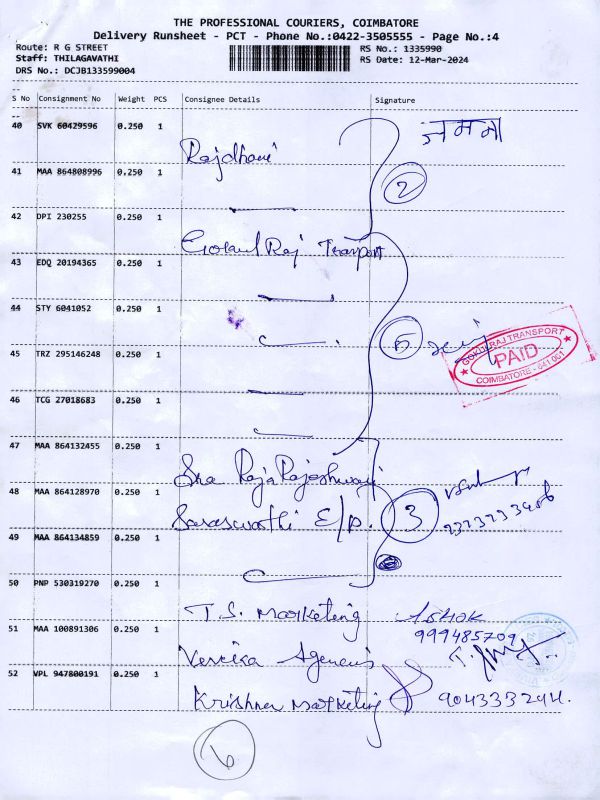 THE PROFESSIONAL COURIERS, COIMBATORE
Delivery Runsheet - PCT - Phone No.:0422-3505555 - Page No.:4
Route: R G STREET RS No.: 1335990
Staff: THILAGAVATHI RS Date: 12-Mar-2024
DRS No.: DCJB133599004
S No Consignment No Weight PCS Consignee Details Signature
40 SVK 60429596 0.250 1
Rajdhani
41 MAA 864808996 0.250 1
2
42 DPI 230255 0.250 1
Gokul Raj Transport
43 EDQ 20194365 0.250 1
44 STY 6041052 0.250 1
GOKUL RAJ TRANSPORT
PAID
COIMBATORE - 641 001
45 TRZ 295146248 0.250 1
46 TCG 27018683 0.250 1
47 MAA 864132455 0.250 1
Sha RajaRajeshwari
48 MAA 864128970 0.250 1
Saraswathi E/P. 3
49 MAA 864134859 0.250 1
50 PNP 530319270 0.250 1
T.S. Marketing Ashok
51 MAA 100891306 0.250 1 999485709
Agencies
52 VPL 947800191 0.250 1
Krishna Marketing 9043333294.
6